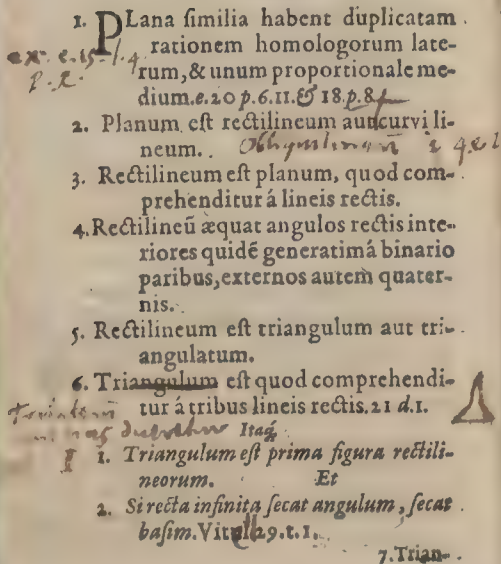 1. PLana similia habent duplicatam
rationem homologorum late-
rum, & unum proportionale me-
dium. e. 20 p. 6. 11. & 18. p. 8.
2. Planum est rectilineum aut curvili
neum.
3. Rectilineum est planum, quod com-
prehenditur á lineis rectis.
4. Rectilineũ æquat angulos rectis inte-
riores quidẽ generatimá binario
paribus, externos autem quater-
nis.
5. Rectilineum est triangulum aut tri-
angulatum.
6. Triangulum est quod comprehendi-
tur á tribus lineis rectis. 21 d. 1.
Itaq́
1. Triangulum est prima figura rectili-
neorum. Et
2. Si recta infinita secat angulum, secat
basim. Vitell 29. t. 1.
7. Trian-